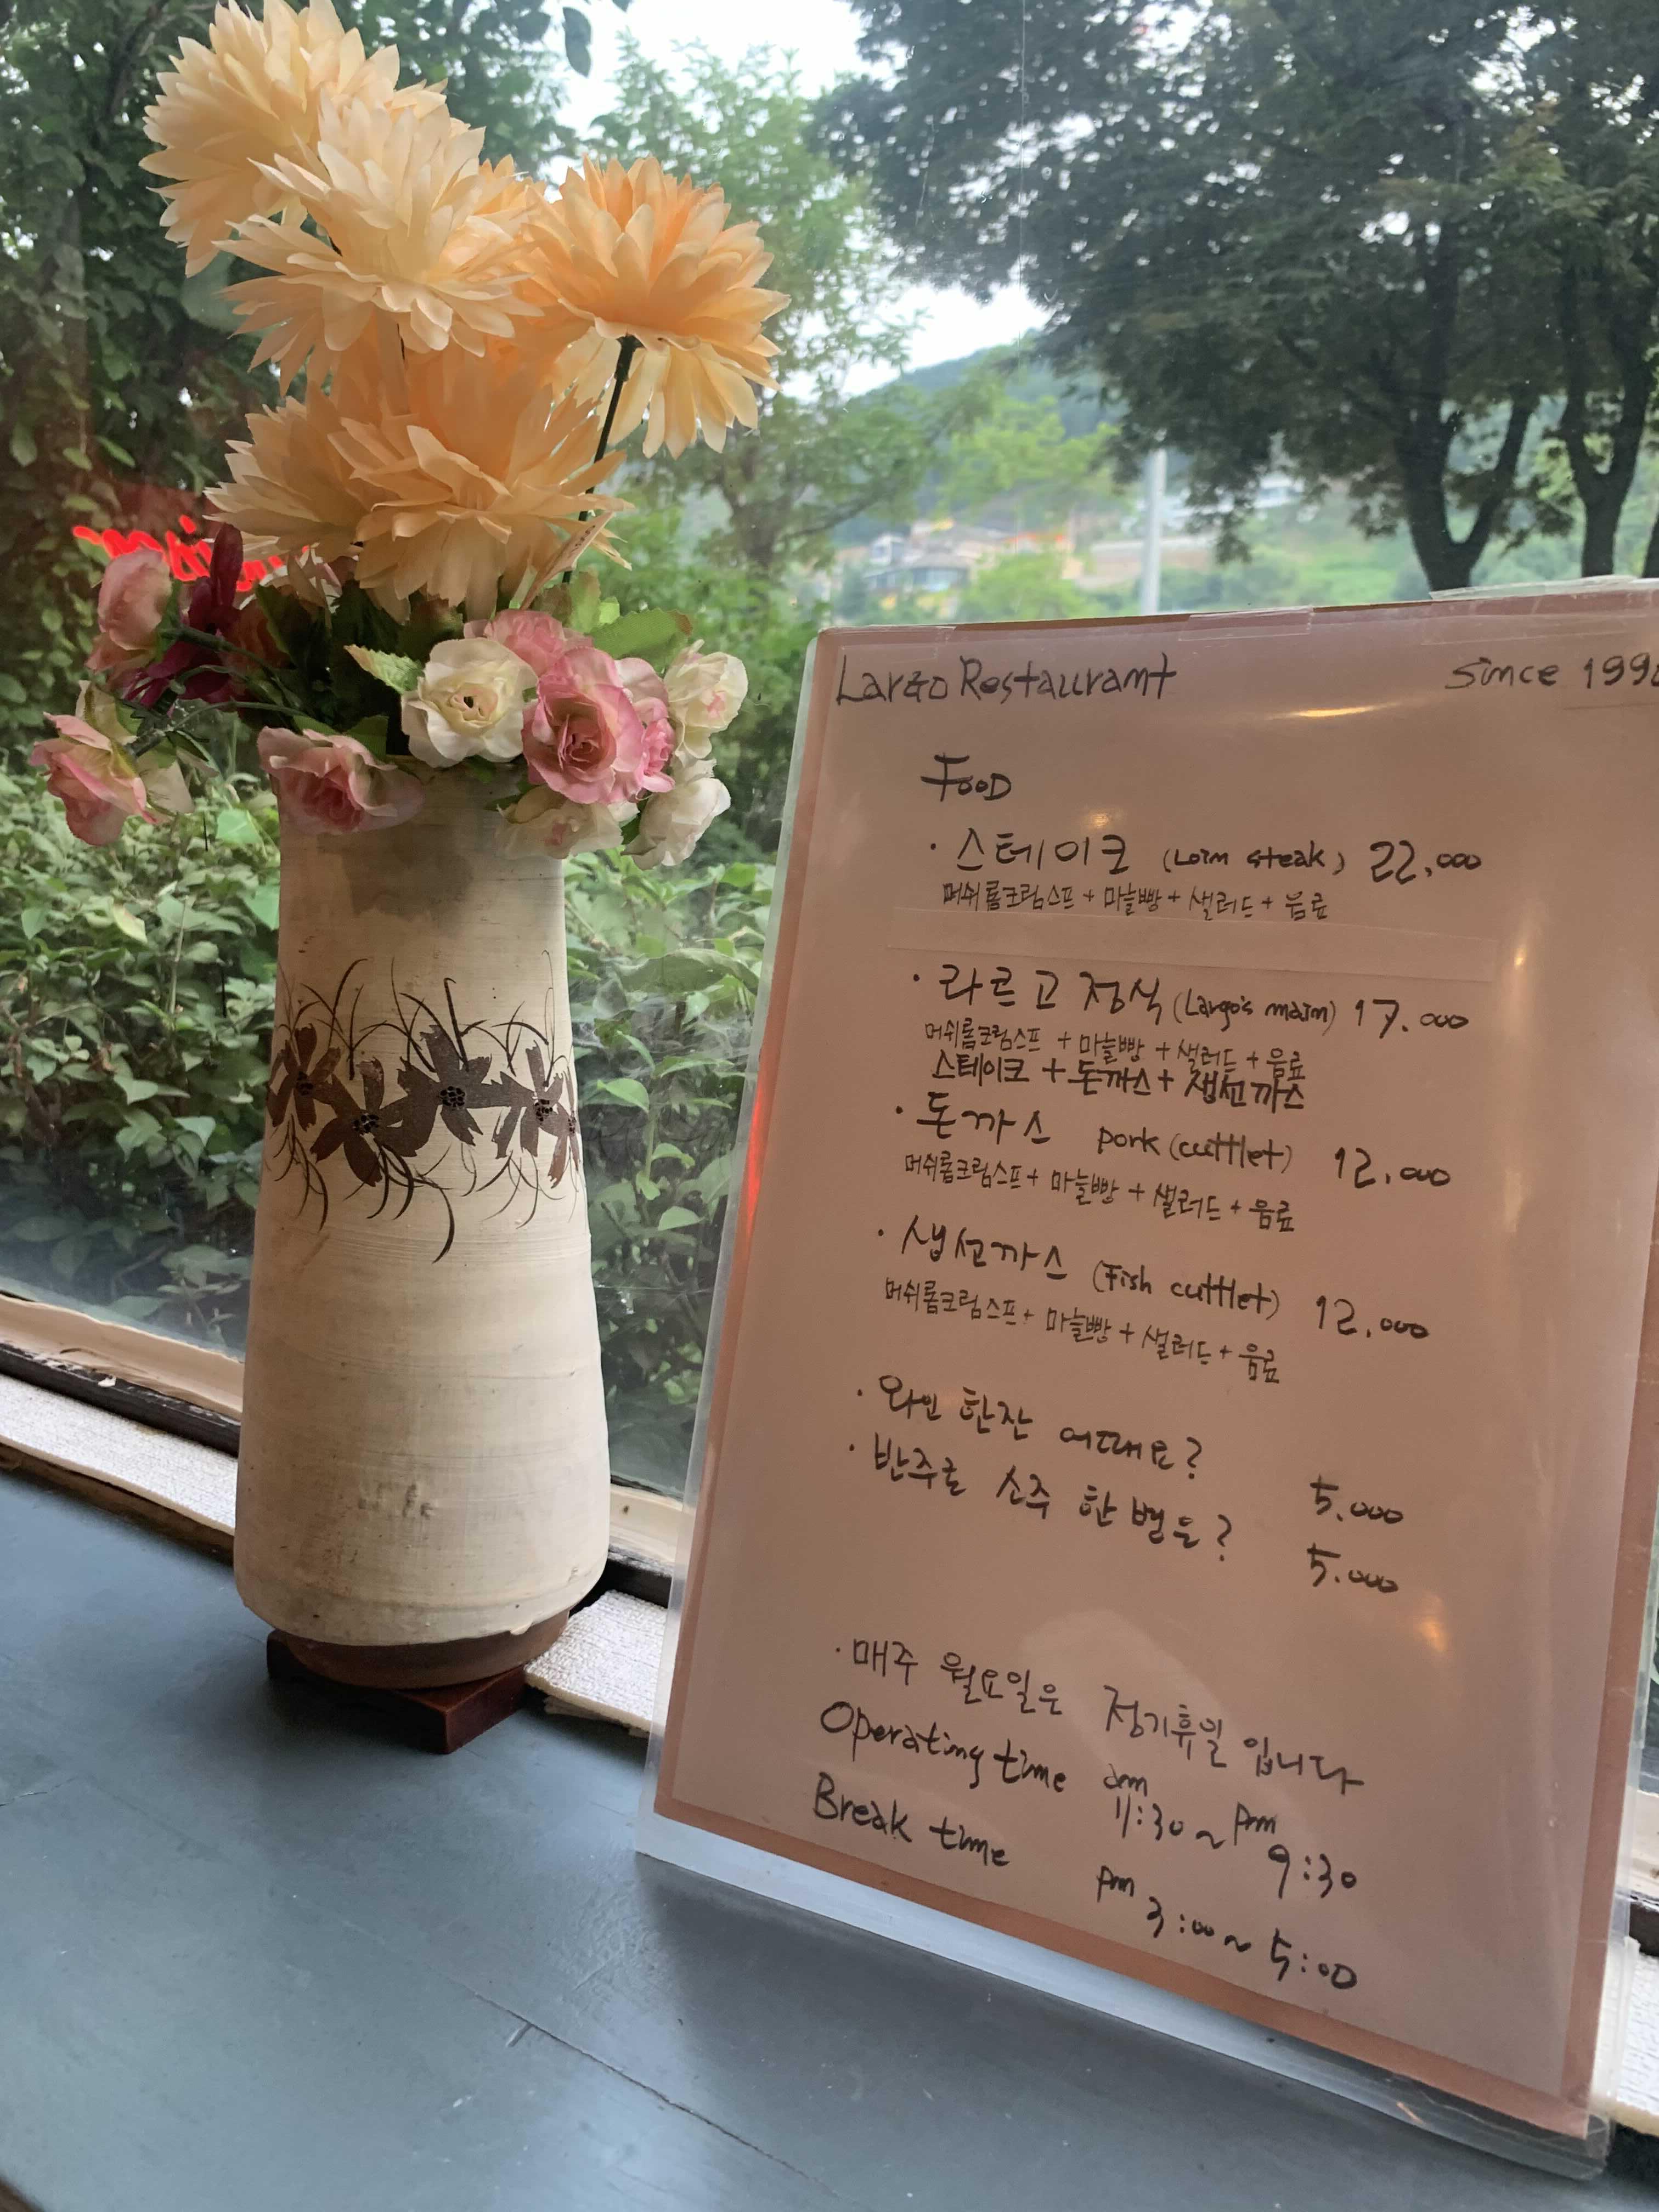 Largo Restaurant
Since 199
Food
· 스테이크 (Loin steak) 22,000
머쉬룸크림스프 + 마늘빵 + 샐러드 + 음료
· 라르고 정식 (Largo's main) 17.000
머쉬룸크림스프 + 마늘빵 + 샐러드 + 음료
스테이크 + 돈까스 + 생선까스
· 돈까스 pork (cuttlet) 12.000
머쉬룸크림스프 + 마늘빵 + 샐러드 + 음료
· 생선까스 (Fish cuttlet) 12.000
머쉬룸크림스프 + 마늘빵 + 샐러드 + 음료
· 와인 한잔 어때요? 5.000
· 반주로 소주 한 병은? 5.000
· 매주 월요일은 정기휴일 입니다
Operating time am 11:30 ~ pm 9:30
Break time pm 3:00 ~ 5:00